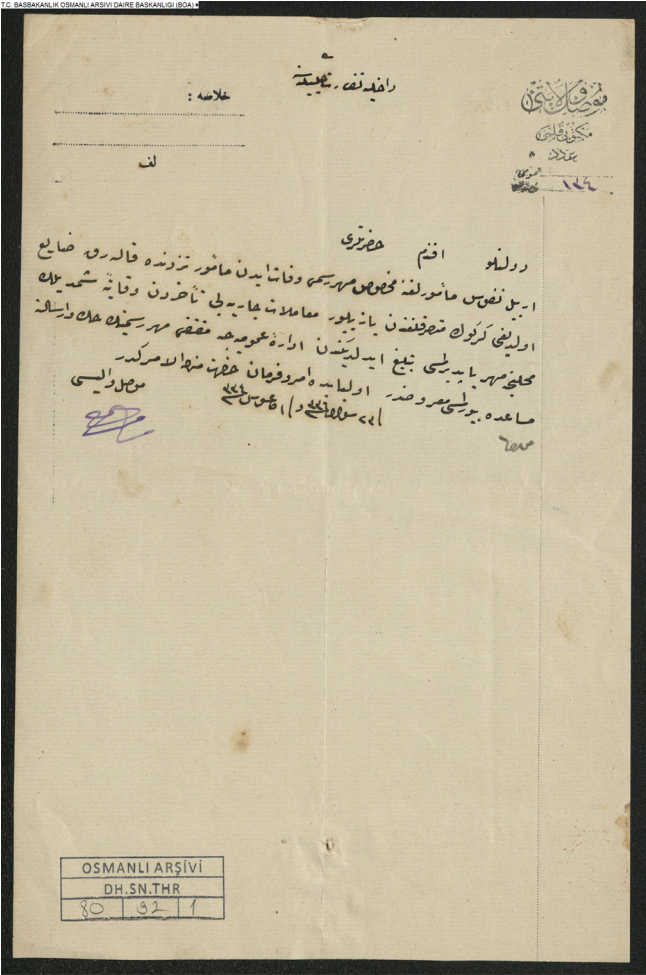 T.C. BASBAKANLIK OSMANLI ARSIVI DAIRE BASKANLIGI (BOA)
موصل ولايتى
مكتوبى قلمى
عدد
عمومى
١٣٤
داخليه نظارت جليله‌سنه
خلاصه :
لف
دولتلو افندم حضرتلرى
اربيل نفوس مأمورلغنه مخصوص مهر رسمى وفات ايدن مأمور نزدنده قاله‌رق ضايع
اولديغى كركوك متصرفلغندن يازيليور معاملات جاريه‌يى تأخردن وقايةً شمديلك
محلنجه مهر ياپديرلمسى تبليغ ايدلديكندن اداره عموميه‌جه مقتضى مهر رسمينك حك وارسالنه
مساعده بيورلمسى معروضدر اولبابده امر وفرمان حضرت من له الامركدر
موصل واليسى
OSMANLI ARŞİVİ
DH.SN.THR
80 92 1